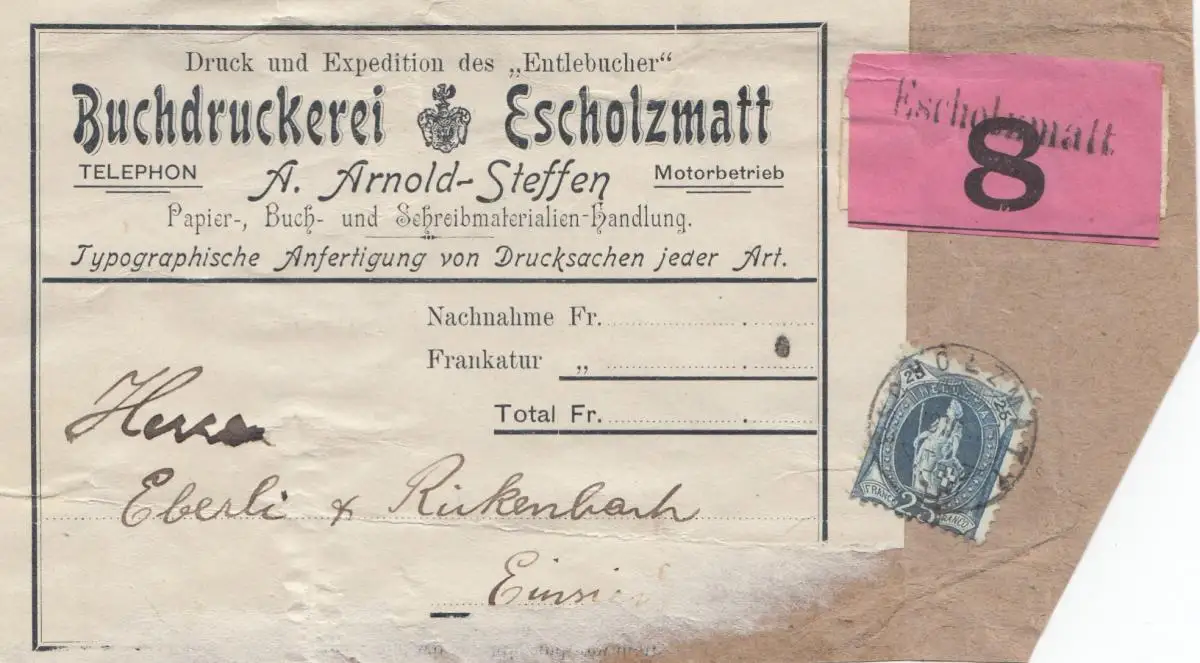 Druck und Expedition des „Entlebucher“
Buchdruckerei Escholzmatt
TELEPHON A. Arnold-Steffen Motorbetrieb
Papier-, Buch- und Schreibmaterialien-Handlung.
Typographische Anfertigung von Drucksachen jeder Art.
Nachnahme Fr.
Frankatur „
Total Fr.
Eberli & Rickenbach
Escholzmatt
8
25 25
HELVETIA
FRANCO 25 FRANCO